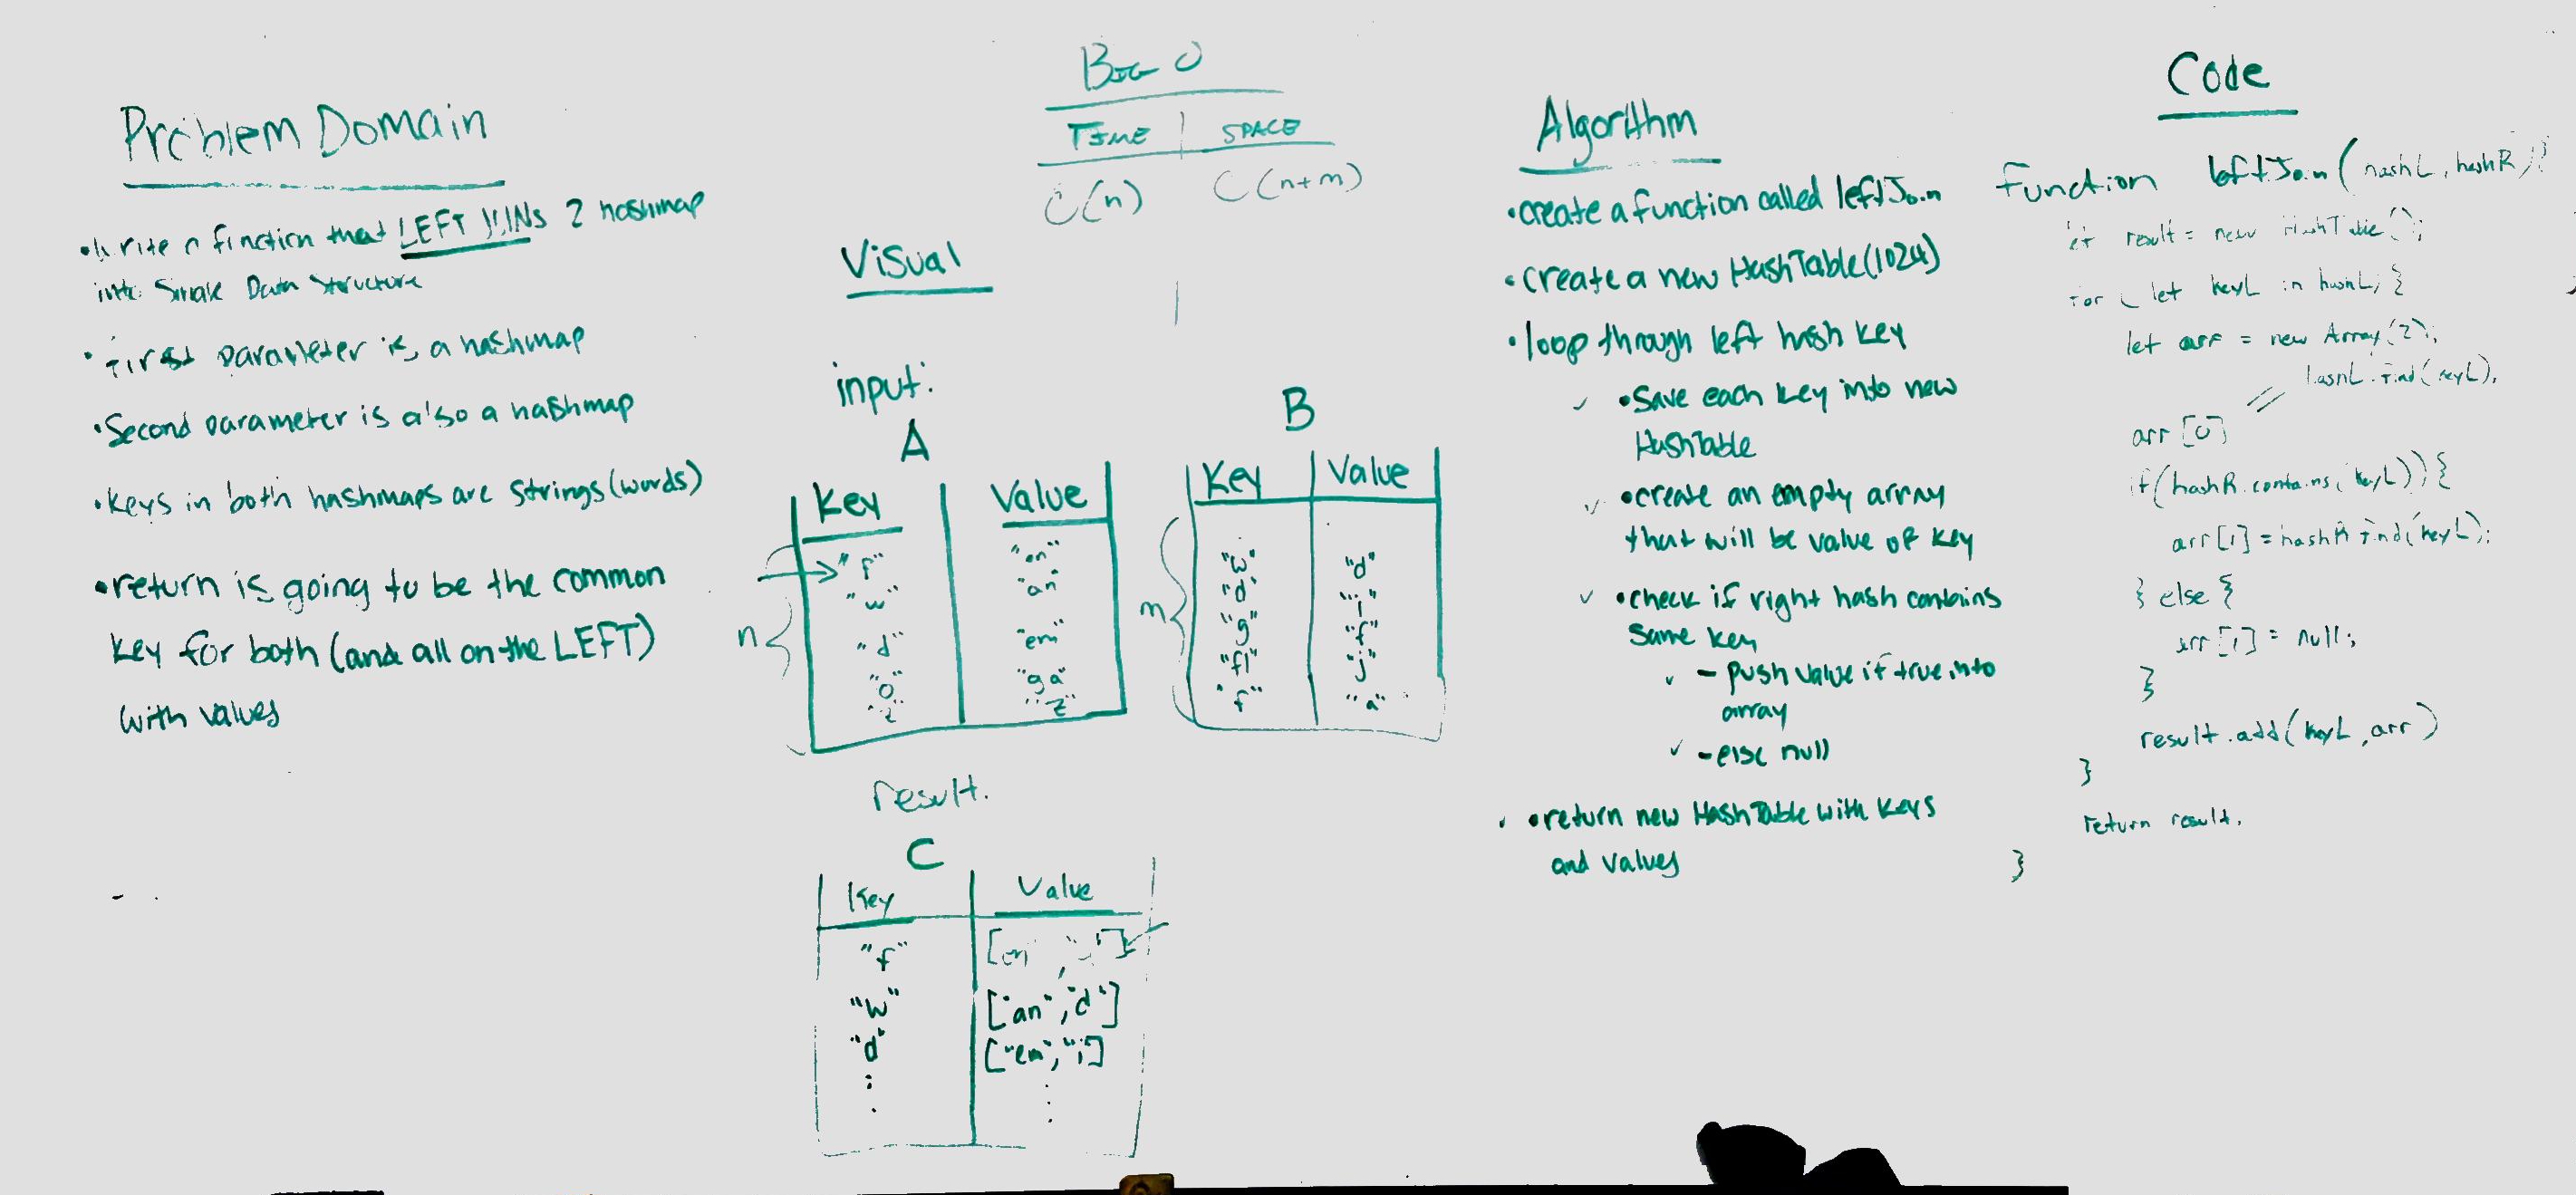 Problem Domain
• Write a function that LEFT JOINs 2 hashmap
into Single Data Structure
• First parameter is a hashmap
• Second parameter is also a hashmap
• Keys in both hashmaps are strings (words)
• return is going to be the common
key for both (and all on the LEFT)
with values
BIG O
TIME | SPACE
O(n) O(n+m)
Visual
input:
A
Key Value
"f" "en"
"w" "an"
"d" "em"
"o" "ga"
"z" "z"
n
B
Key Value
"w" "d"
"d" "i"
"g" "f"
"fl" "j"
"f" "a"
m
result.
C
Key Value
"f" [en ,
"w" ["an", "d"]
"d" ["em", "i"]
Algorithm
• create a function called leftJoin
• create a new HashTable(1024)
• loop through left hash key
• Save each key into new
HashTable
• create an empty array
that will be value of key
• check if right hash contains
same key
- push value if true into
array
- else null
• return new HashTable with keys
and values
Code
function leftJoin(hashL, hashR){
let result = new HashTable();
for (let keyL in hashL) {
let arr = new Array(2);
arr[0] = hashL.find(keyL);
if(hashR.contains(keyL)){
arr[1] = hashR.find(keyL);
} else {
arr[1] = null;
}
result.add(keyL, arr)
}
return result;
}